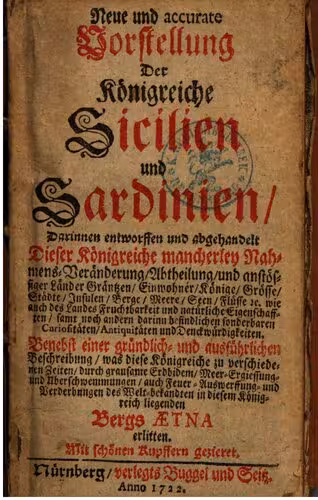 Neue und accurate
Vorstellung
Der
Königreiche
Sicilien
und
Sardinien/
Darinnen entworffen und abgehandelt
Dieser Königreiche mancherley Nah-
mens-Veränderung/Abtheilung/und anstös-
siger Länder Gräntzen/Einwohner/Könige/Grösse/
Städte/Insulen/Berge/Meere/Seen/Flüsse ꝛc. wie
auch des Landes Fruchtbarkeit und natürliche Eigenschaff-
ten/ samt noch andern darinn befindlichen sonderbaren
Curiositäten/Antiquitäten und Denckwürdigkeiten.
Benebst einer gründlich- und ausführlichen
Beschreibung/was diese Königreiche zu verschiede-
nen Zeiten/durch grausame Erdbidem/Meer-Ergiessung-
und Überschwemmungen/auch Feuer-Auswerffung-und
Verderbungen des Welt-bekandten in diesem König-
reich liegenden
Bergs ÆTNA
erlitten.
Mit schönen Kupffern gezieret.
Nürnberg/verlegts Buggel und Seitz.
Anno 1722.